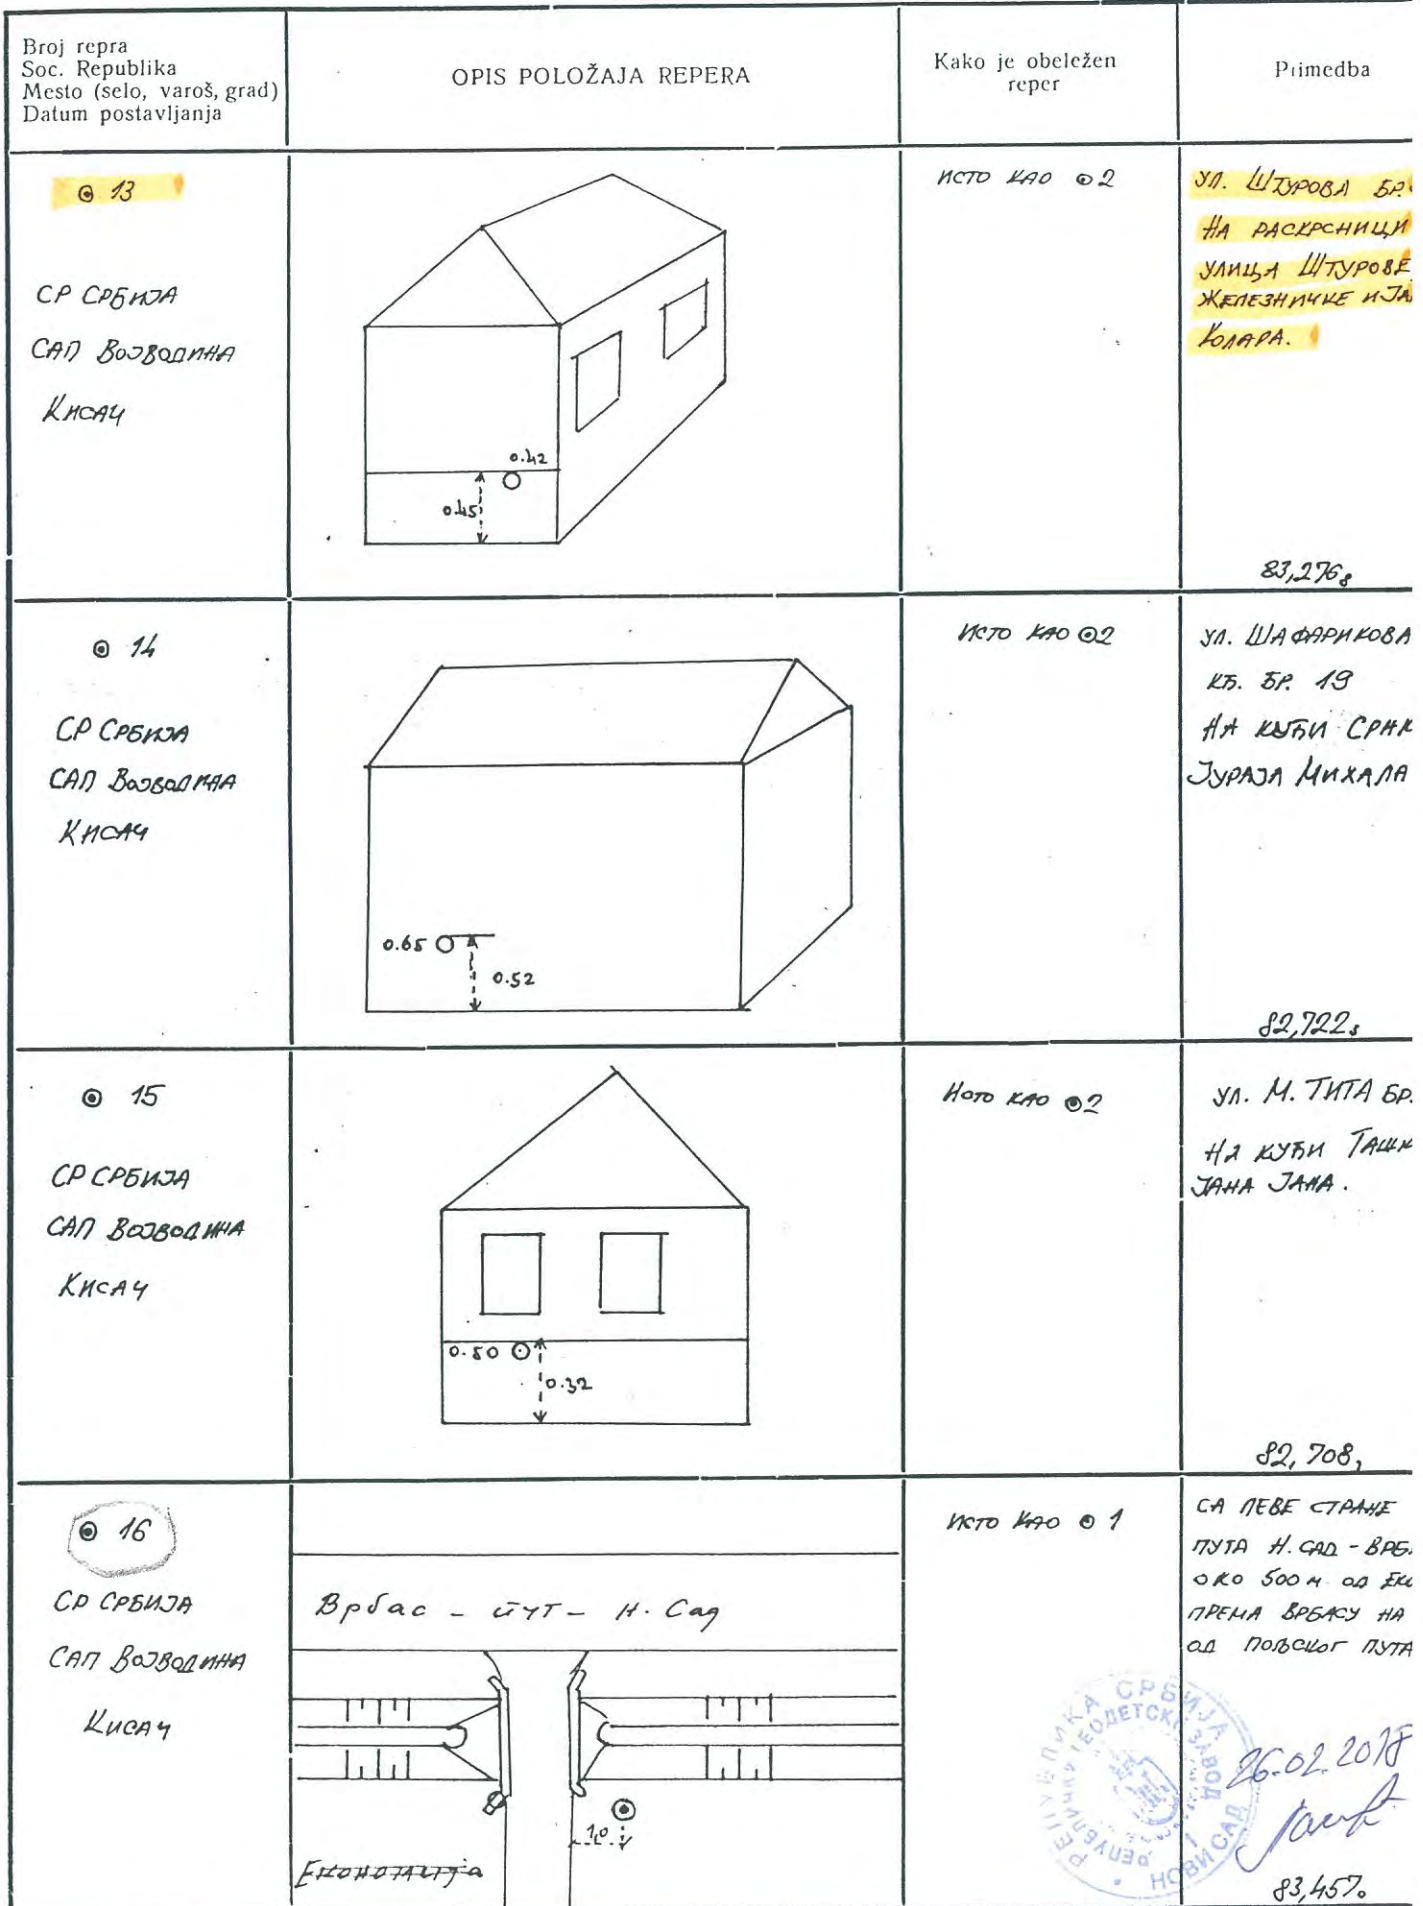 Broj repra
Soc. Republika
Mesto (selo, varoš, grad)
Datum postavljanja
OPIS POLOŽAJA REPERA
Kako je obeležen
reper
Primedba
13
СР СРБИЈА
САП ВОЈВОДИНА
КИСАЧ
0.42
0.45
ИСТО КАО ⊙ 2
УЛ. ШТУРОВА БР.
НА РАСКРСНИЦИ
УЛИЦА ШТУРОВЕ
ЖЕЛЕЗНИЧКЕ И ЈА
КОЛАРА.
83,276₈
⊙ 14
СР СРБИЈА
САП ВОЈВОДИНА
КИСАЧ
0.65
0.52
ИСТО КАО ⊙ 2
УЛ. ШАФАРИКОВА
КЋ. БР. 19
НА КУЋИ
ЈУРАЈА МИХАЛА
82,722
⊙ 15
СР СРБИЈА
САП ВОЈВОДИНА
КИСАЧ
0.50
0.32
ИСТО КАО ⊙ 2
УЛ. М. ТИТА БР.
НА КУЋИ ТАШК
ЈАНА ЈАНА.
82,708
⊙ 16
СР СРБИЈА
САП ВОЈВОДИНА
КИСАЧ
Врбас - пут - Н. Сад
1,0
Економија
ИСТО КАО ⊙ 1
СА ЛЕВЕ СТРАНЕ
ПУТА Н. САД - ВРБ
ОКО 500 М ОД ЕК
ПРЕМА ВРБАСУ НА
ОД ПОЉСКОГ ПУТА
РЕПУБЛИКА СРБИЈА
РЕПУБЛИЧКИ ГЕОДЕТСКИ ЗАВОД
НОВИ САД
26.02.2018
83,457₀